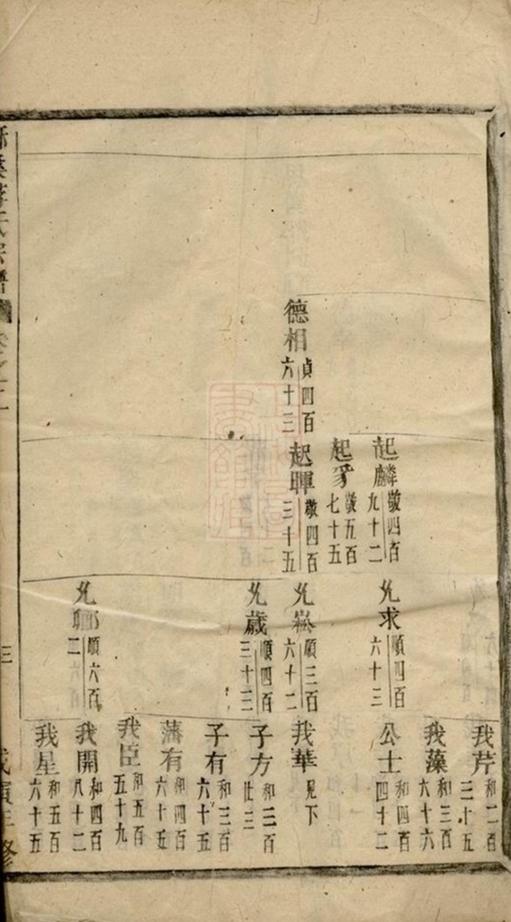 德相 貞四百六十三
起麟 敬四百九十二
起豸 敬五百七十五
起暉 敬四百三十五
允求 順四百六十三
允崧 順三百六十二
允歲 順四百三十三
允 順六百
我芹 和二百三十五
我藻 和三百六十六
公士 和四百四十二
我華 見下
子方 和三百
子有 和三百六十五
藩有 和四百六十五
我臣 和五百五十九
我開 和四百八十二
我星 和五百六十五
氏宗譜
三